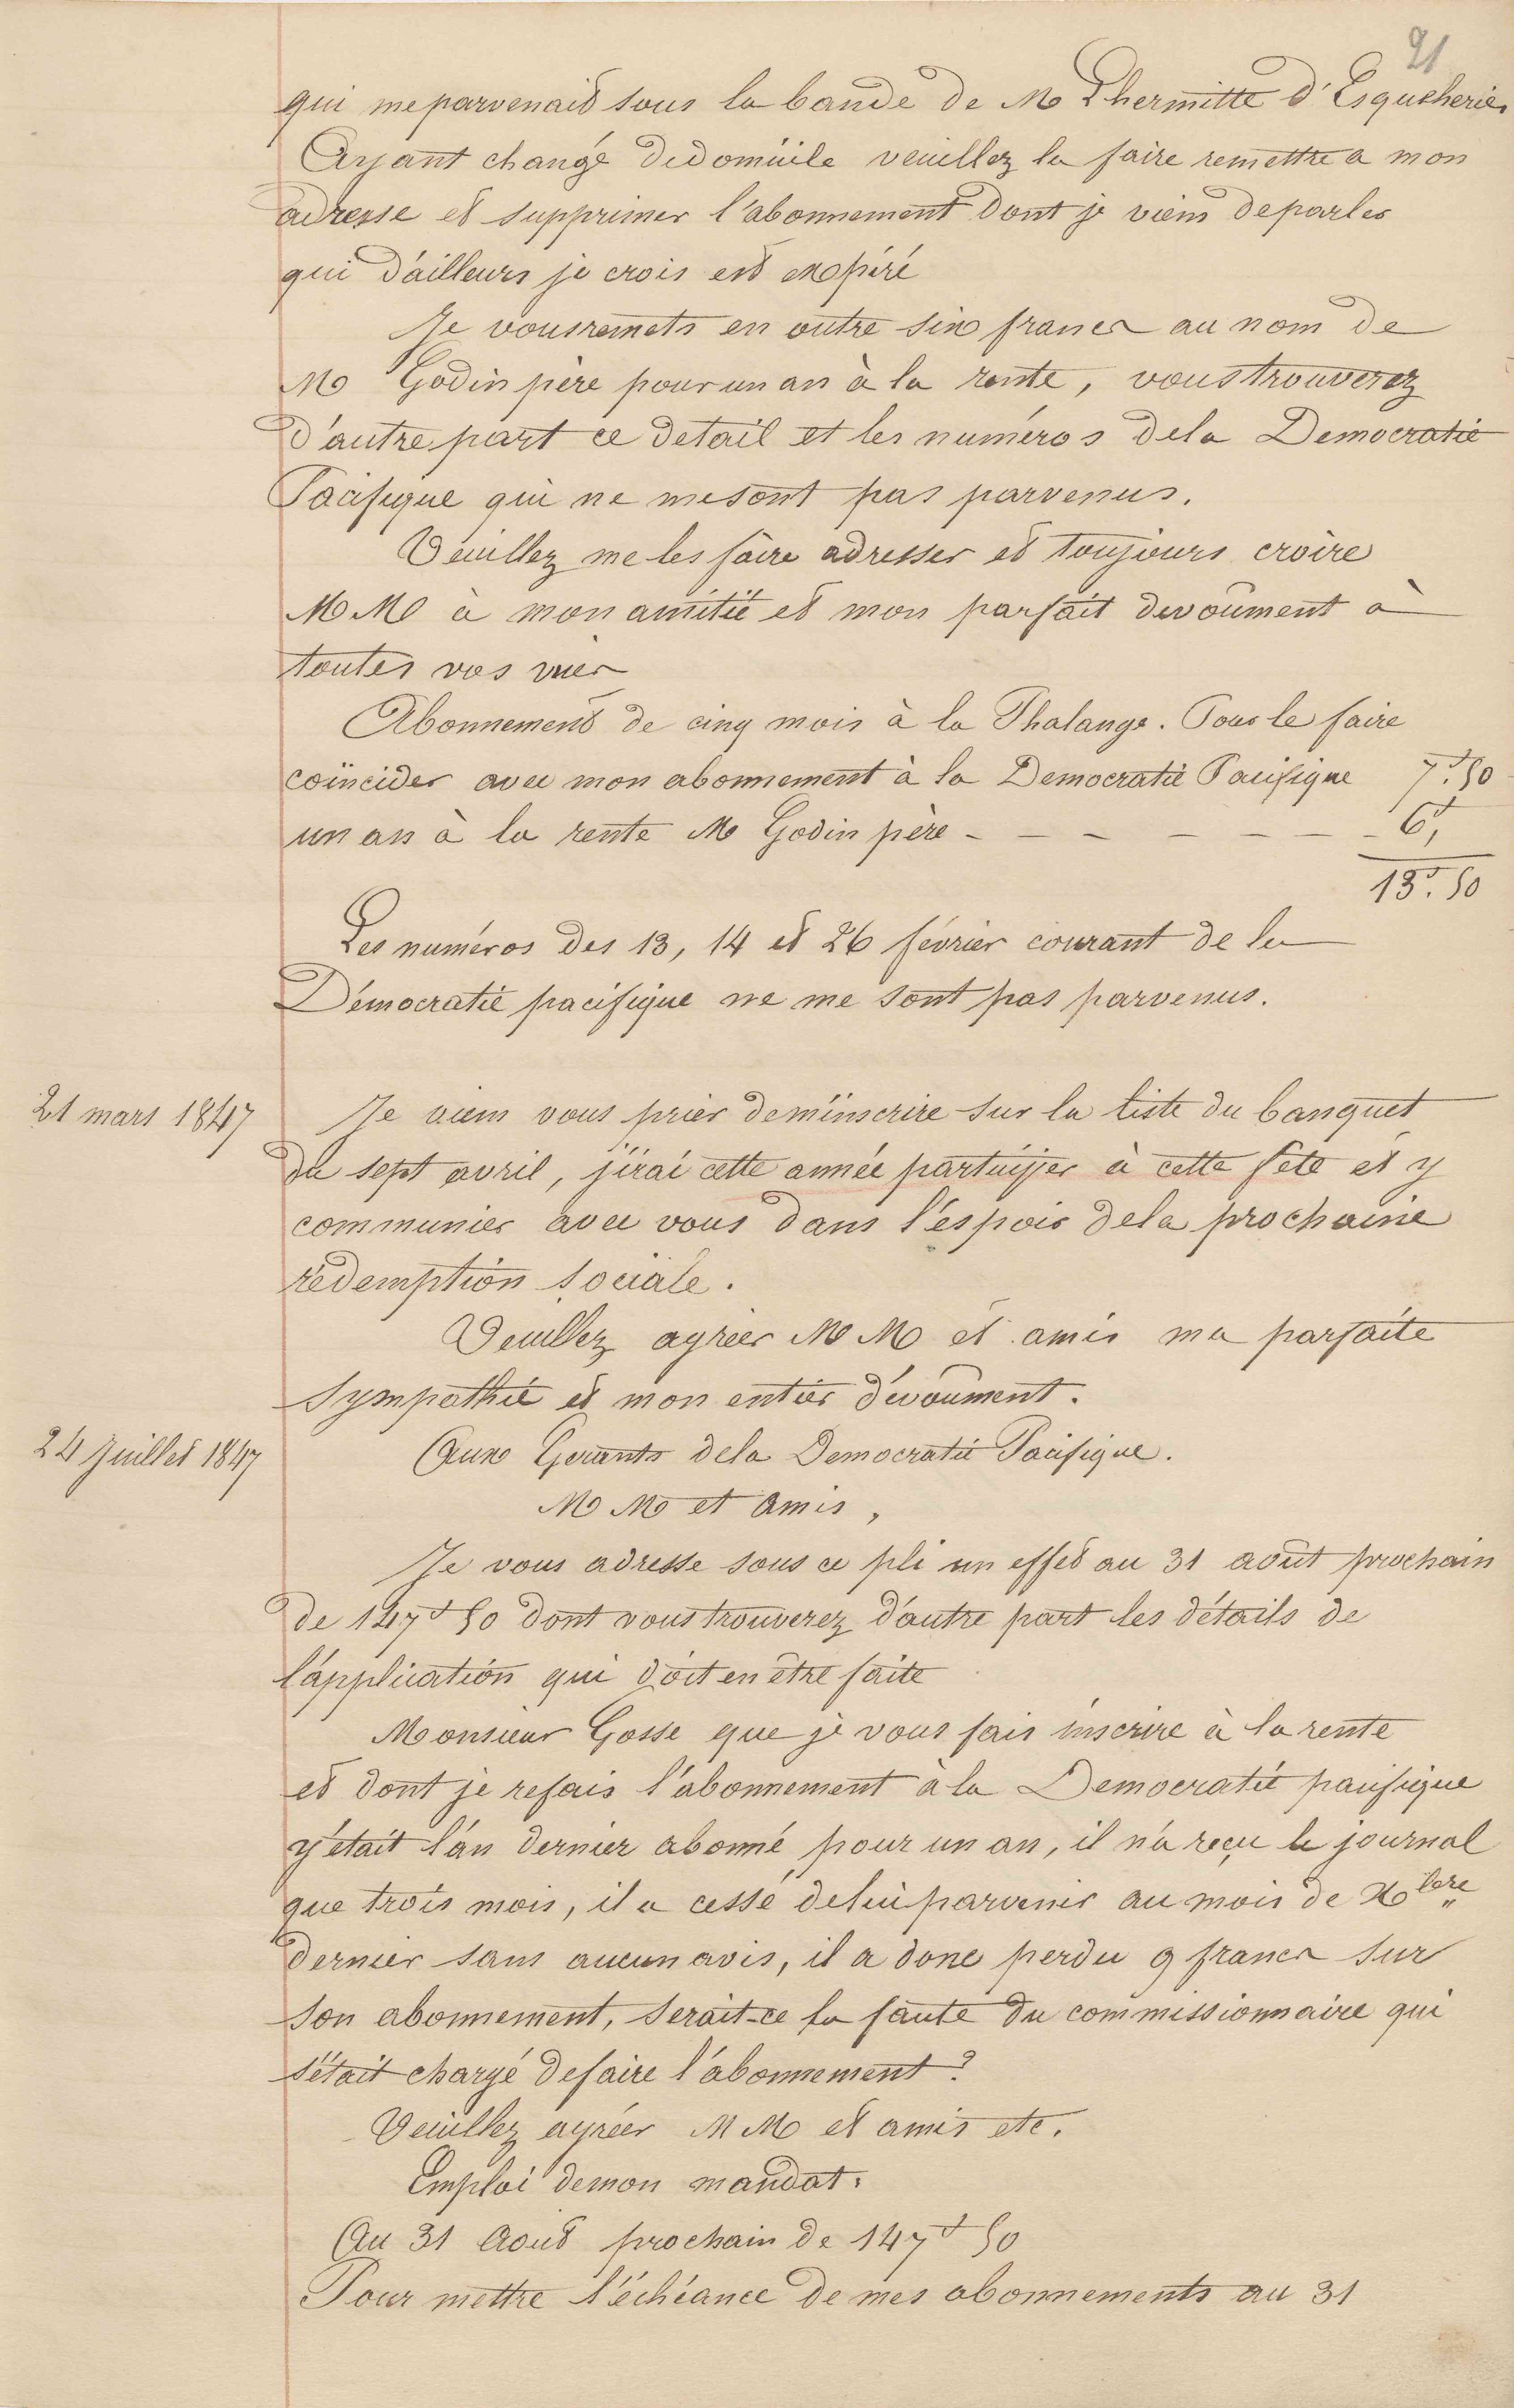 21
qui me parvenait sous la bande de M Lhermitte d'Esqueheries
Ayant changé de domicile veuillez la faire remettre a mon
adresse et supprimer l'abonnement dont je viens de parler
qui d'ailleurs je crois est expiré
Je vous remets en outre six francs au nom de
M Godin père pour un an à la rente, vous trouverez
d'autre part ce detail et les numéros de la Democratie
Pacifique qui ne me sont pas parvenus.
Veuillez me les faire adresser et toujours croire
M M à mon amitié et mon parfait devoûment à
toutes vos vues
Abonnement de cinq mois à la Phalange. Pour le faire
coïncider avec mon abonnement à la Democratie Pacifique 7f.50
un an à la rente M Godin père - - - - - - - 6f,
13f.50
Les numéros des 13, 14 et 26 février courant de la
Démocratie pacifique ne me sont pas parvenus.
21 mars 1847
Je viens vous prier de m'inscrire sur la liste du banquet
du sept avril, j'irai cette année participer à cette fête et y
communier avec vous dans l'espoir de la prochaine
rédemption sociale.
Veuillez agréer M M et amis ma parfaite
sympathie et mon entier dévoûment.
24 Juillet 1847
Aux Gerants de la Democratie Pacifique.
M M et Amis,
Je vous adresse sous ce pli un effet au 31 août prochain
de 147f 50 dont vous trouverez d'autre part les détails de
l'application qui doit en être faite
Monsieur Gosse que je vous fais inscrire à la rente
et dont je refais l'abonnement à la Democratie pacifique
y était l'an dernier abonné pour un an, il n'a reçu le journal
que trois mois, il a cessé de lui parvenir au mois de Xbre
dernier sans aucun avis, il a donc perdu 9 francs sur
son abonnement, serait-ce la faute du commissionnaire qui
s'était chargé de faire l'abonnement?
Veuillez agréer M M et amis etc.
Emploi de mon mandat.
Au 31 Aout prochain de 147f 50
Pour mettre l'échéance de mes abonnements au 31